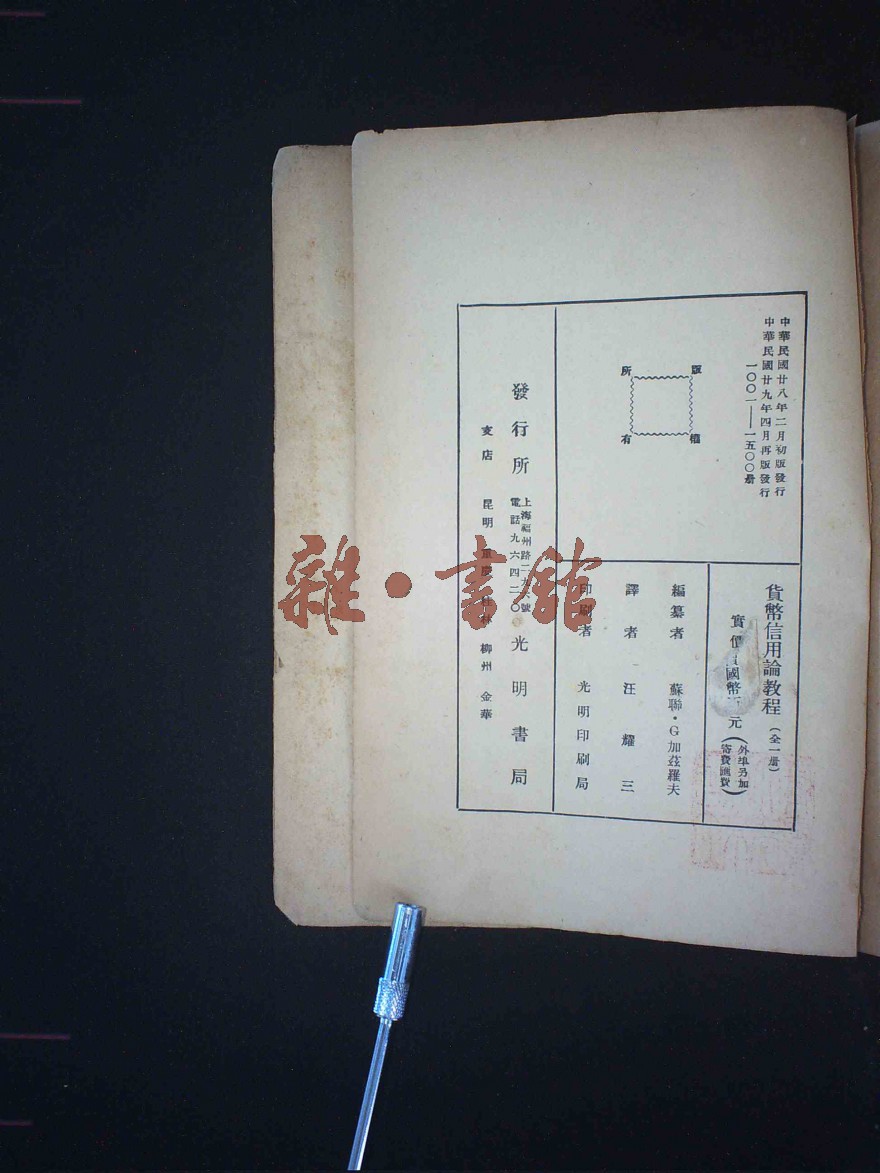 中華民國廿八年二月初版發行
中華民國廿九年四月再版發行
一〇〇一——一五〇〇册
版權所有
貨幣信用論教程（全一册）
實價國幣 元（外埠另加寄費匯費）
編纂者 蘇聯·G加茲羅夫
譯者 汪耀三
印刷者 光明印刷局
發行所 上海福州路二九六號 電話九六四二〇 光明書局
支店 昆明 重慶 桂林 柳州 金華
雜·書館